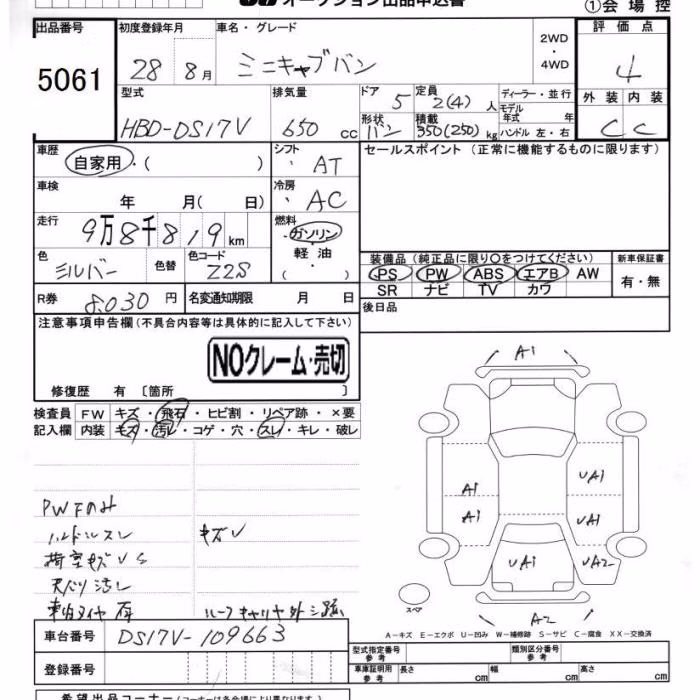 オークション出品申込書
①会場控
出品番号 初度登録年月 車名・グレード 評価点
5061
28 8月 ミニキャブバン 2WD・4WD 4
型式 排気量 ドア 定員 ディーラー・並行 外装 内装
HBD-DS17V 650cc 5 2(4)人 モデル年式 年 C C
形状 積載 ハンドル 左・右
バン 350(250)kg
車歴 シフト セールスポイント (正常に機能するものに限ります)
自家用・( ) AT
車検 冷房
年 月( 日) AC
走行 燃料
9万8千819km ガソリン・軽油・( )
色 色替 色コード
シルバー Z2S
装備品 (純正品に限り○をつけてください) 新車保証書
PS PW ABS エアB AW 有・無
SR ナビ TV カワ
R券 8,030円 名変通知期限 月 日
後日品
注意事項申告欄(不具合内容等は具体的に記入して下さい)
NOクレーム・売切
修復歴 有 〔箇所 〕
検査員 FW キズ・飛石・ヒビ割・リペア跡・×要
記入欄 内装 キズ・汚レ・コゲ・穴・スレ・キレ・破レ
A1
A1 UA1
A1 UA1
UA1 UA2
A2
スペア
PWFのみ
ハンドルスレ キズU
荷室キズUS
天バリ汚レ
ルーフキャリヤ外シ跡
A−キズ E−エクボ U−凹み W−補修跡 S−サビ C−腐食 XX−交換済
車台番号 DS17V-109663
型式指定番号 参考 類別区分番号 参考
登録番号
車庫証明用 参考 長さ cm 幅 cm 高さ cm
希望出品コーナー(コーナーは各会場により異なります。)